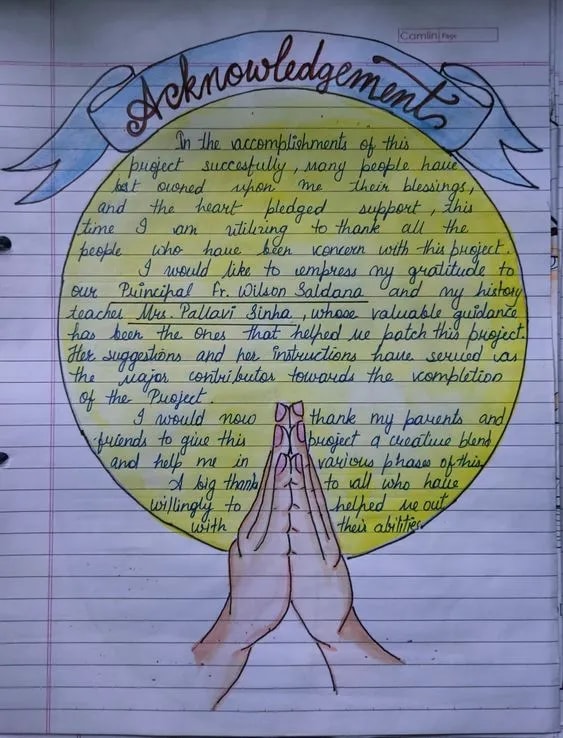 Camlin Page
Acknowledgement
In the accomplishments of this
project succesfully, many people have
best owned upon me their blessings,
and the heart pledged support, this
time I am utilizing to thank all the
people who have been concern with this project.
I would like to empress my gratitude to
our Principal Fr. Wilson Saldana and my history
teacher Mrs. Pallavi Sinha, whose valuable guidance
has been the ones that helped me patch this project.
Her suggestions and her instructions have served as
the major contributor towards the completion
of the Project.
I would now thank my parents and
friends to give this project a creative blend
and help me in various phases of this.
A big thank to all who have
willingly to helped me out
with their abilities.